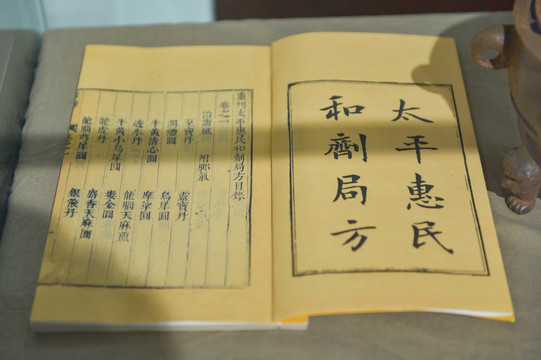 太平惠民
和劑局方
重刊太平惠民和劑局方目錄
卷之一
治諸風 附腳氣
至寶丹 靈寶丹
潤體圓 烏犀圓
牛黃清心圓 摩挲圓
透冰丹 龍腦天麻煎
牛黃小烏犀圓
龍虎丹 麝香天麻圓
龍腦芎犀圓 銀液丹